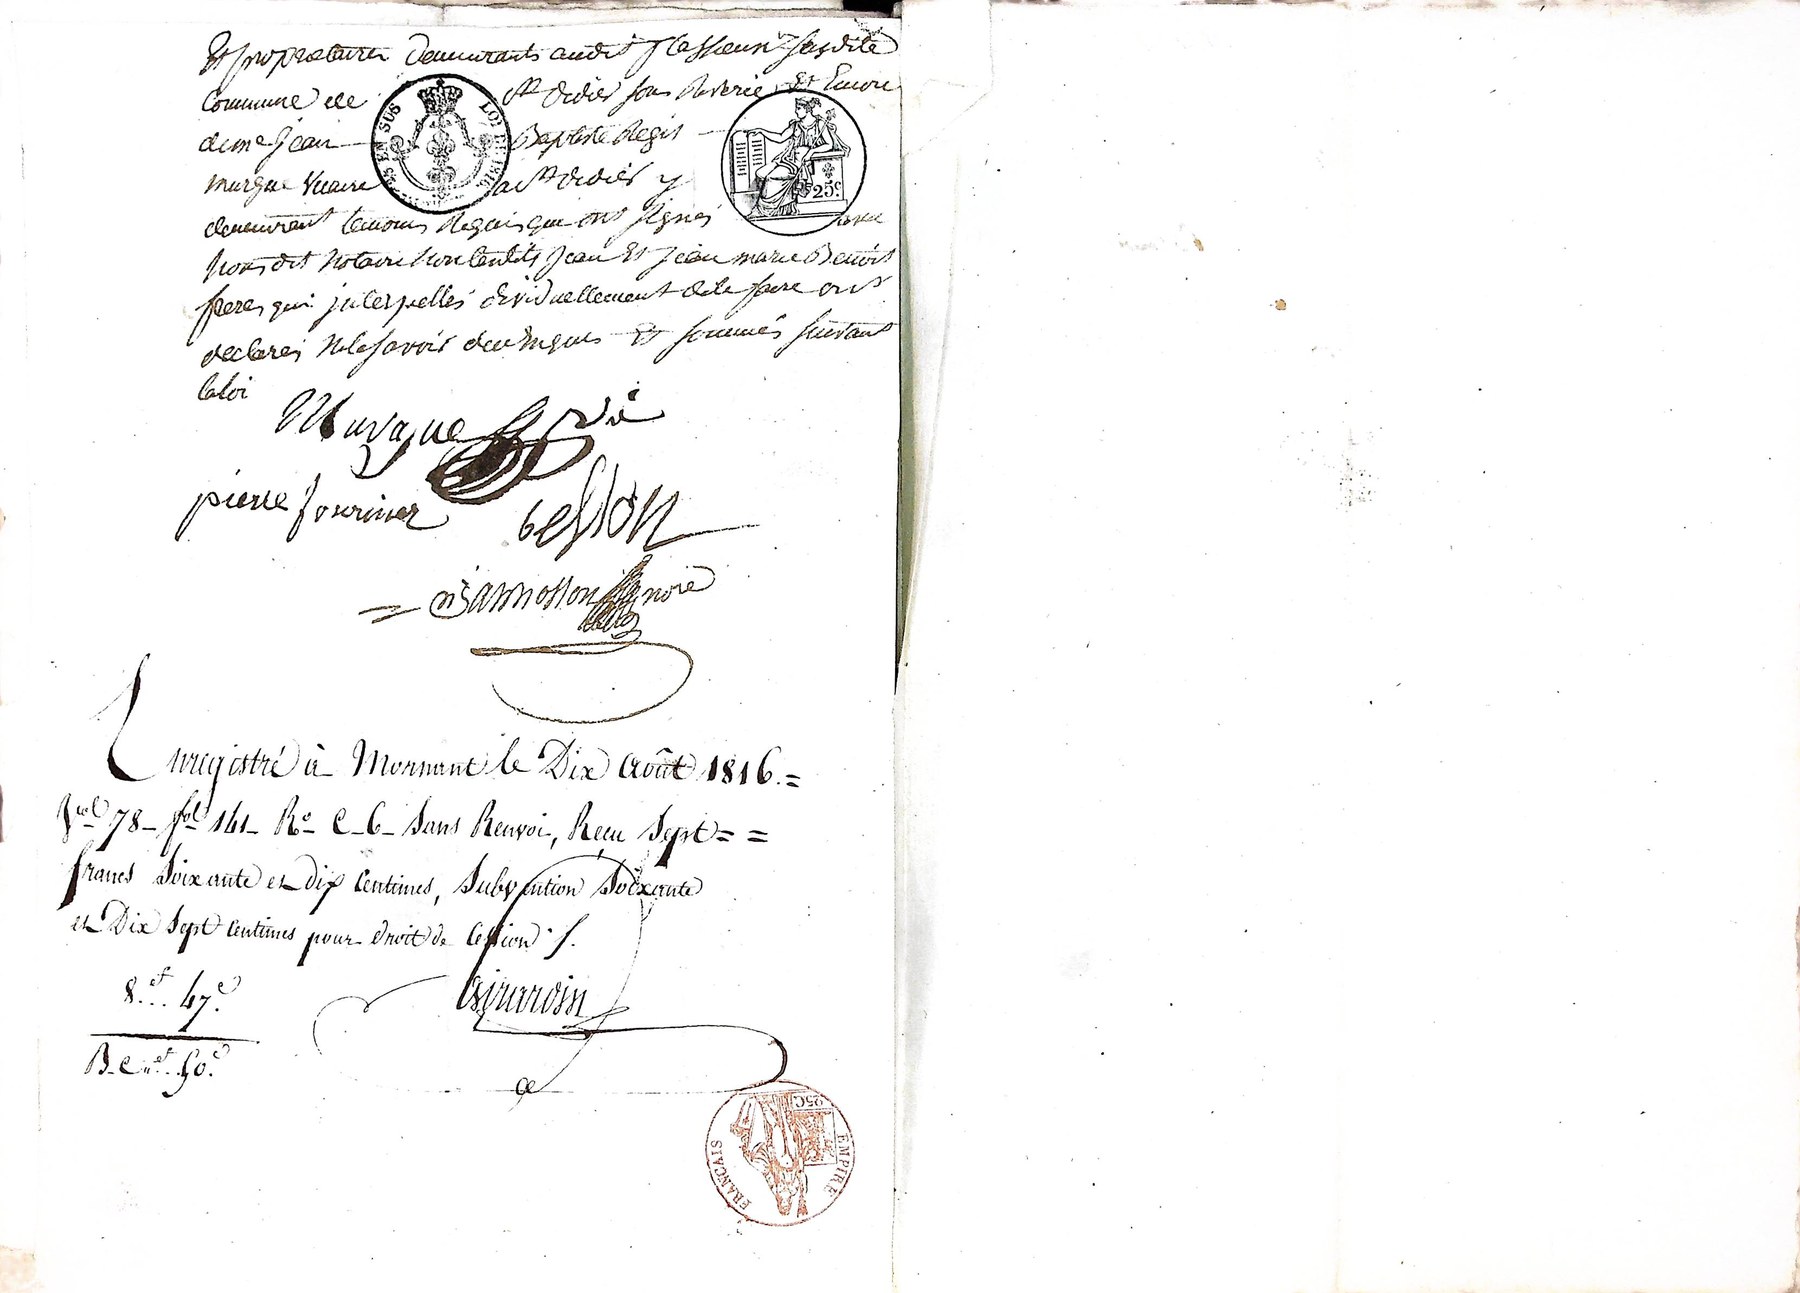 Et propriétaires demeurants audit flassieur susdite
commune de St didier sous Riverie, Et Encore
de me jean Baptiste Régis
murgue vicaire a St didier y
demeurant temoins Requis qui ont signés avec
nous dit notaire non lesdits jean Et jean marie Benoit
freres qui interpellés dividuellement de le faire ont
declarés ne le savoir de ce enquis Et sommés suivant
la loi
25 EN SUS LOI DE 1816
25c
Murgue vic
pierre fournier besson
noire
Enregistré à Mornant le Dix Août 1816. =
Vol 78 - fol 141 - Ro C. 6 - Sans Renvoi, Reçu Sept = =
francs Soixante et dix Centimes, Subvention Soixante
et Dix Sept Centimes pour droit de Cession
8f... 47c.
Girardin
50c.
25C
EMPIRE FRANCAIS